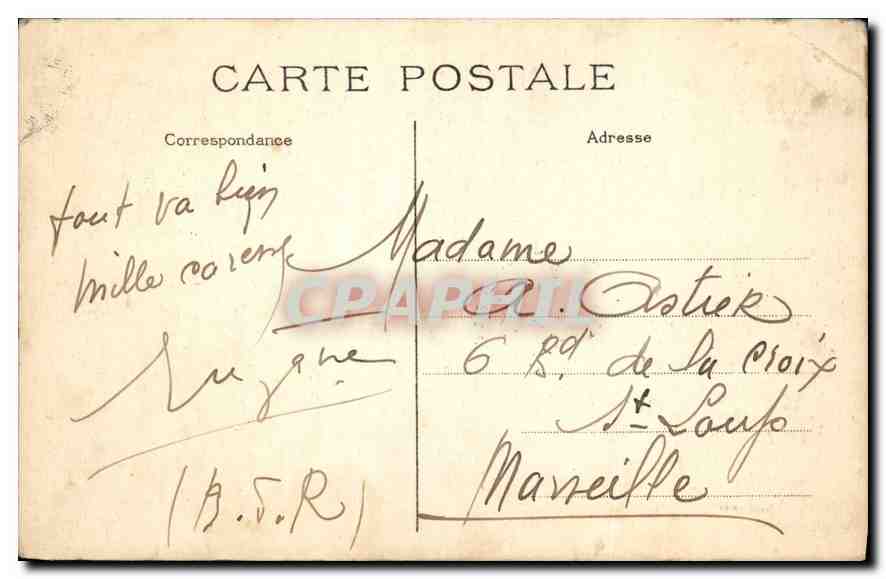 CARTE POSTALE
Correspondance
Adresse
tout va bien
mille caresses
Suzane
(B.d.R)
Madame
A. Astier
6 Bd. de la Croix
St Loup
Marseille
CPAPHIL